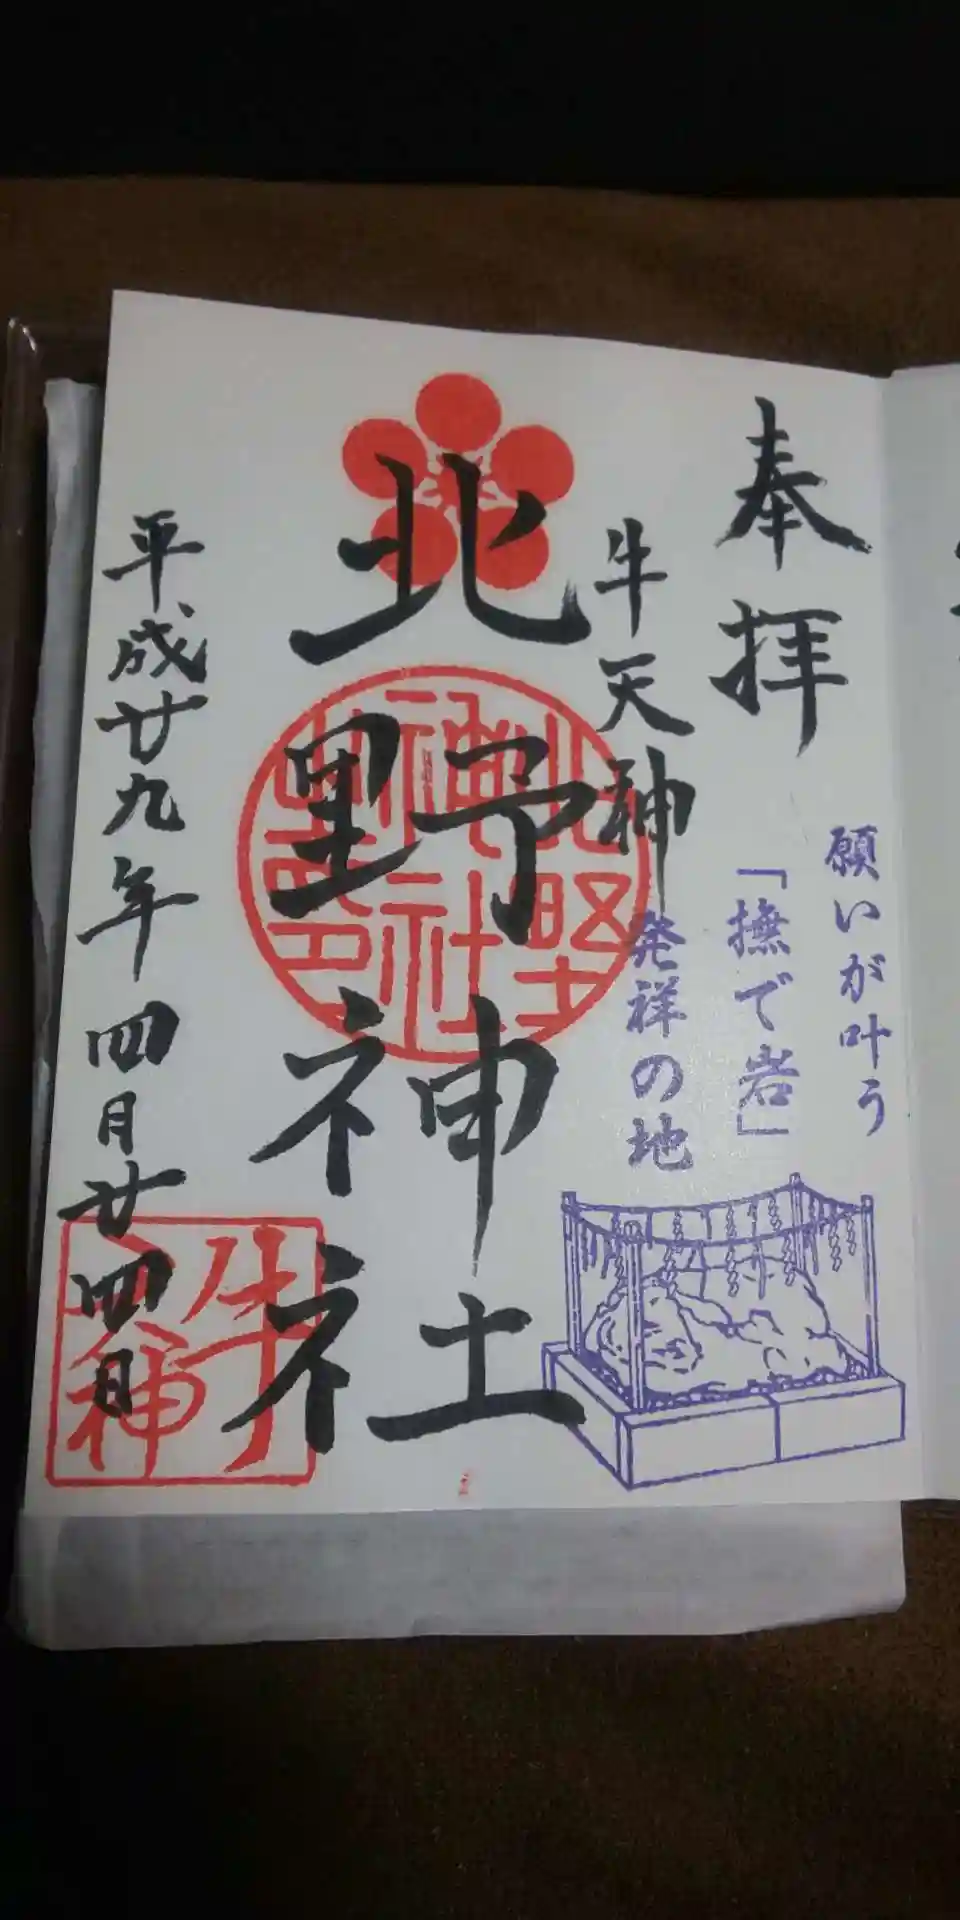 奉拝
願いが叶う
「撫で岩」
牛天神
発祥の地
北野神社
北野神社之印
平成廿九年四月廿四日
牛天神